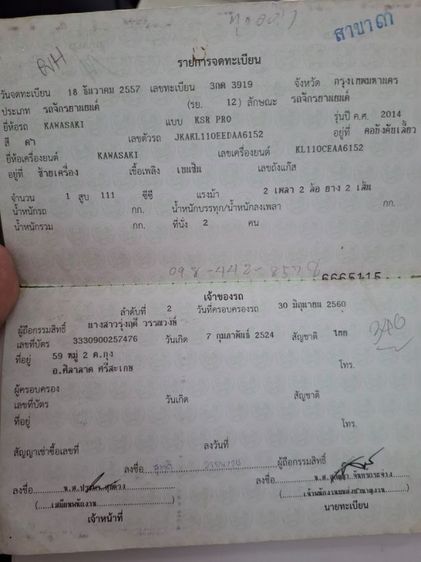 สาขา
รายการจดทะเบียน
วันจดทะเบียน 18 ธันวาคม 2557 เลขทะเบียน 3กด 3919 จังหวัด กรุงเทพมหานคร
ประเภท รถจักรยานยนต์ (รย. 12) ลักษณะ รถจักรยานยนต์
ยี่ห้อรถ KAWASAKI แบบ KSR PRO รุ่นปี ค.ศ. 2014
สี ดำ เลขตัวรถ JKAKL110EEDAA6152 อยู่ที่ คอ
ยี่ห้อเครื่องยนต์ KAWASAKI เลขเครื่องยนต์ KL110CEAA6152
อยู่ที่ ซ้ายเครื่อง เชื้อเพลิง เบนซิน เลขถังแก๊ส
จำนวน 1 สูบ 111 ซีซี แรงม้า 2 เพลา 2 ล้อ ยาง 2 เส้น
น้ำหนักรถ กก. น้ำหนักบรรทุก/น้ำหนักลงเพลา กก.
น้ำหนักรวม กก. ที่นั่ง 2 คน
098-442-8578
6665115
เจ้าของรถ
ลำดับที่ 2 วันที่ครอบครองรถ 30 มิถุนายน 2560
ผู้ถือกรรมสิทธิ์ นางสาวรุ่งฤดี
เลขที่บัตร 3330900257476 วันเกิด 7 กุมภาพันธ์ 2524 สัญชาติ ไทย
ที่อยู่ 59 หมู่ 2 ต.ทุ่ง โทร.
อ.ศิลาลาด ศรีสะเกษ
ผู้ครอบครอง
เลขที่บัตร วันเกิด สัญชาติ
ที่อยู่ โทร.
สัญญาเช่าซื้อเลขที่ ลงวันที่
ลงชื่อ ผู้ถือกรรมสิทธิ์
ลงชื่อ ลงชื่อ
เจ้าหน้าที่ นายทะเบียน